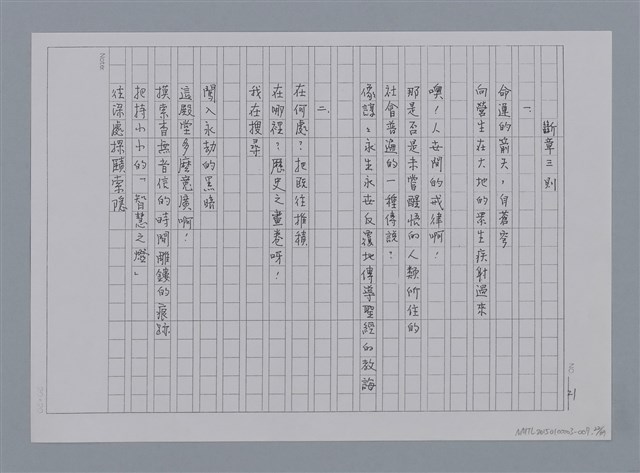 斷章三則
一、
命運的箭矢，自蒼穹
向營生在大地的眾生疾射過來
噢！人世間的戒律啊！
那是否是未嘗醒悟的人類所住的
社會普遍的一種傳說？
像謎：永生永世反覆地傳導聖經的教誨
二、
在何處？把既往堆積
在哪裡？歷史之畫卷呀！
我在搜尋
闖入永劫的黑暗
這殿堂多麼寬廣啊！
摸索杳無音信的時間雕鏤的痕跡
把持小小的「智慧之燈」
往深處探賾索隱
No. 21
Note